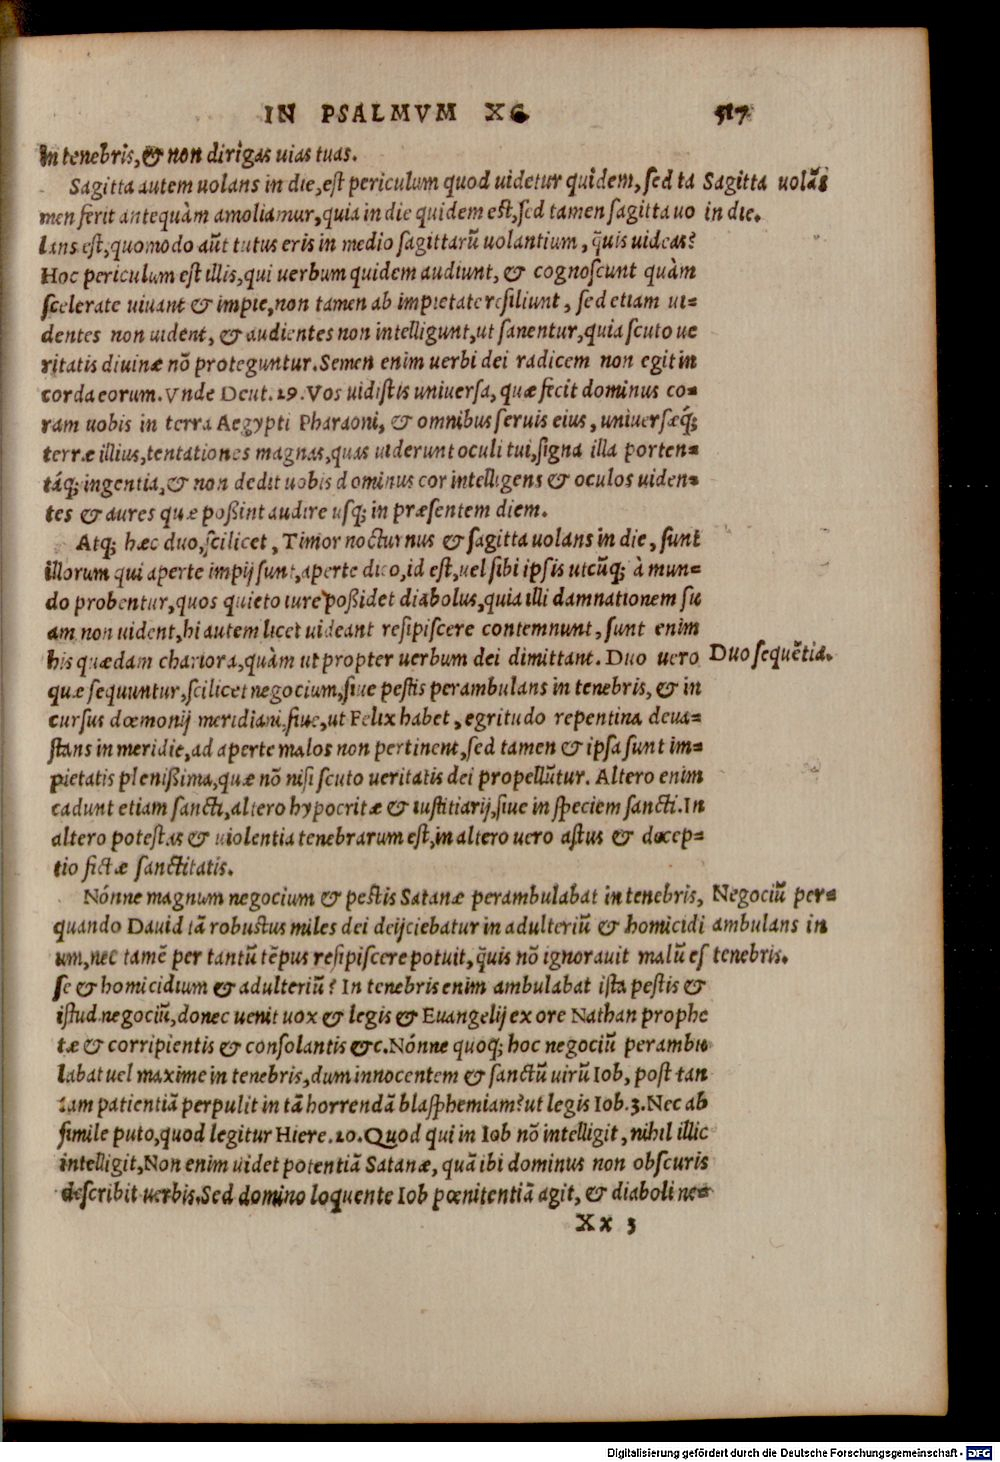 IN PSALMVM XC 517
in tenebris, & non dirigas uias tuas.
Sagitta autem uolans in die, est periculum quod uidetur quidem, sed ta
men ferit antequàm amoliamur, quia in die quidem est, sed tamen sagitta uo
lans est, quomodo aūt tutus eris in medio sagittarū uolantium, q̄uis uideas?
Hoc periculum est illis, qui uerbum quidem audiunt, & cognoscunt quàm
scelerate uiuant & impie, non tamen ab impietate resiliunt, sed etiam ui=
dentes non uident, & audientes non intelligunt, ut sanentur, quia scuto ue
ritatis diuinæ nō proteguntur. Semen enim uerbi dei radicem non egit in
corda eorum. Vnde Deut. 29. Vos uidistis uniuersa, quæ fecit dominus co=
ram uobis in terra Aegypti Pharaoni, & omnibus seruis eius, uniuersæq́;
terræ illius, tentationes magnas, quas uiderunt oculi tui, signa illa porten=
táq; ingentia, & non dedit uobis dominus cor intelligens & oculos uiden=
tes & aures quæ poßint audire usq; in præsentem diem.
Atq; hæc duo, scilicet, Timor nocturnus & sagitta uolans in die, sunt
illorum qui aperte impij sunt, aperte dico, id est, uel sibi ipsis utcūq; à mun=
do probentur, quos quieto iure poßidet diabolus, quia illi damnationem su
am non uident, hi autem licet uideant resipiscere contemnunt, sunt enim
his quædam chariora, quàm ut propter uerbum dei dimittant. Duo uero
quæ sequuntur, scilicet negocium, siue pestis perambulans in tenebris, & in
cursus dœmonij meridiani, siue, ut Felix habet, egritudo repentina deua=
stans in meridie, ad aperte malos non pertinent, sed tamen & ipsa sunt im=
pietatis plenißima, quæ nō nisi scuto ueritatis dei propellūtur. Altero enim
cadunt etiam sancti, altero hypocritæ & iustitiarij, siue in speciem sancti. In
altero potestas & uiolentia tenebrarum est, in altero uero astus & decep=
tio fictæ sanctitatis.
Nónne magnum negocium & pestis Satanæ perambulabat in tenebris,
quando Dauid tā robustus miles dei deijciebatur in adulteriū & homicidi
um, nec tamē per tantū tēpus resipiscere potuit, q̄uis nō ignorauit malū es
se & homicidium & adulteriū? In tenebris enim ambulabat ista pestis &
istud negociū, donec uenit uox & legis & Euangelij ex ore Nathan prophe
tæ & corripientis & consolantis &c. Nónne quoq; hoc negociū perambu
labat uel maxime in tenebris, dum innocentem & sanctū uirū Iob, post tan
tam patientiā perpulit in tā horrendā blasphemiam? ut legis Iob. 3. Nec ab
simile puto, quod legitur Hiere. 20. Quod qui in Iob nō intelligit, nihil illic
intelligit, Non enim uidet potentiā Satanæ, quā ibi dominus non obscuris
describit uerbis. Sed domino loquente Iob pœnitentiā agit, & diaboli ne=
Xx 3
Sagitta uolās
in die.
Duo sequētia.
Negociū per=
ambulans in
tenebris.
Digitalisierung gefördert durch die Deutsche Forschungsgemeinschaft - DFG